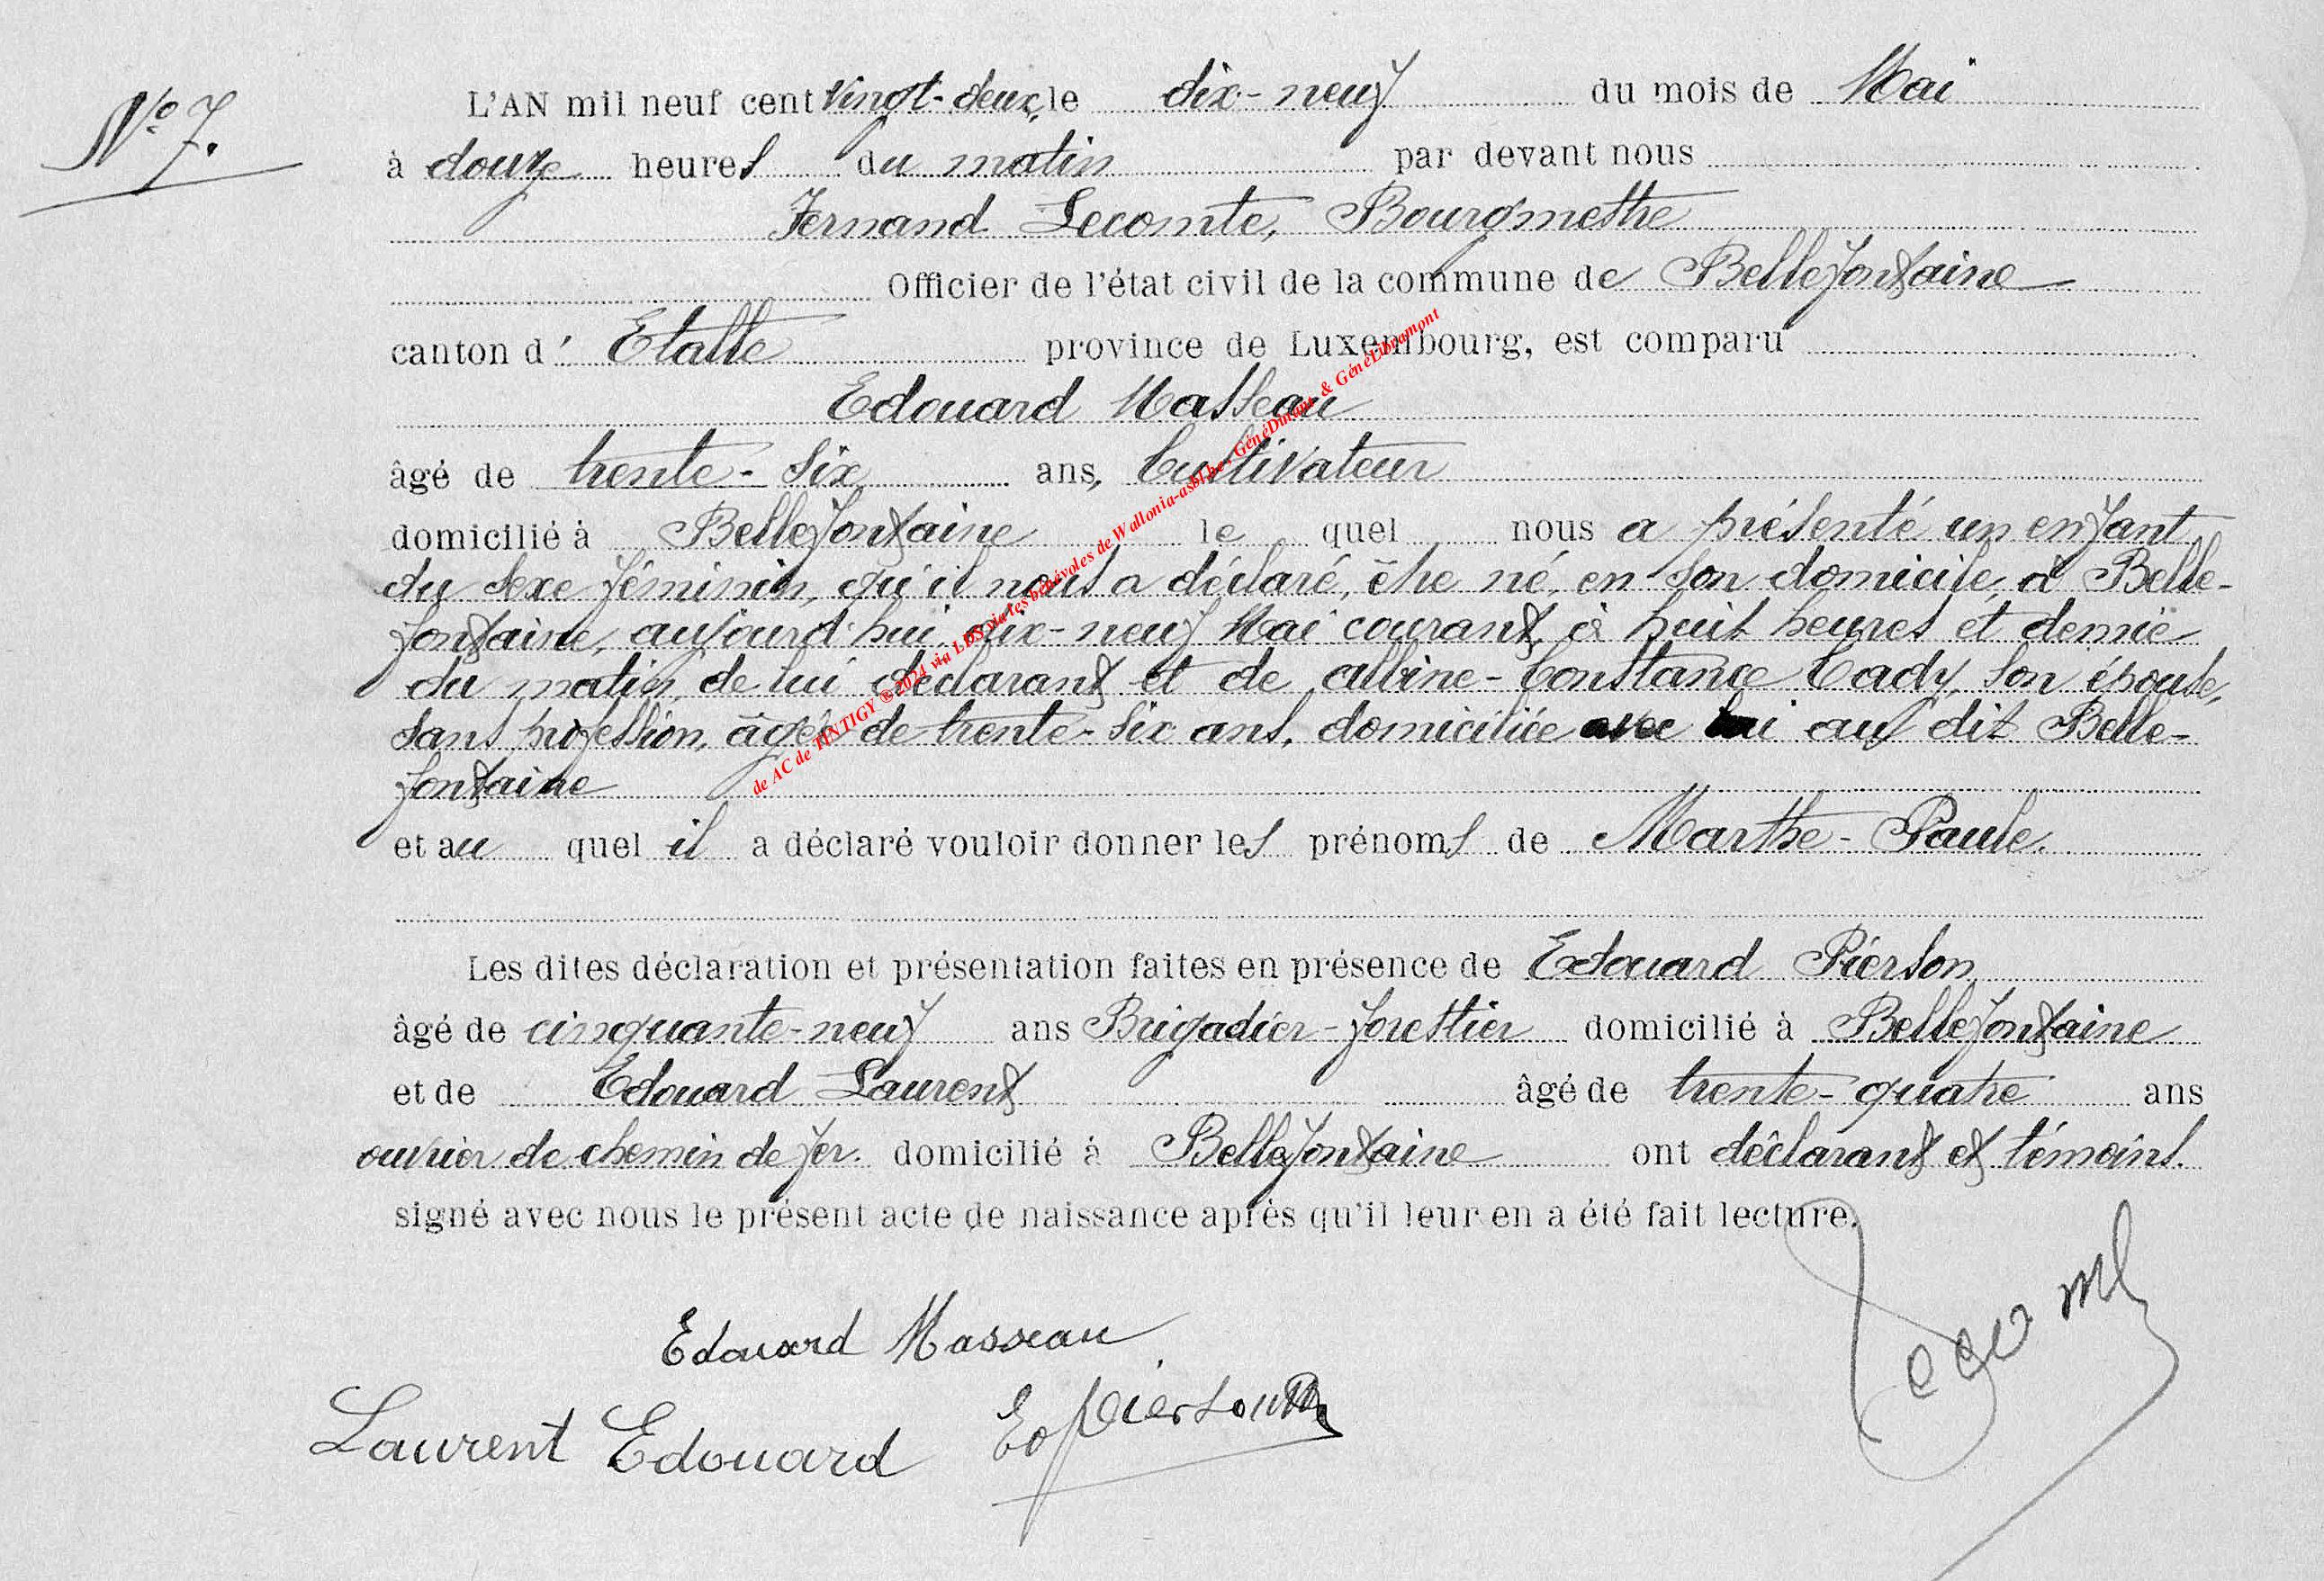 N° 7.
L'AN mil neuf cent vingt-deux, le dix-neuf du mois de Mai
à douze heures du matin par devant nous
Fernand Lecomte, Bourgmestre
Officier de l'état civil de la commune de Bellefontaine
canton d' Etalle province de Luxembourg, est comparu
Edouard Masseau
âgé de trente-six ans, Cultivateur
domicilié à Bellefontaine le quel nous a présenté un enfant
du sexe féminin, qu'il nous a déclaré, être né, en son domicile, à Belle-
fontaine, aujourd'hui dix-neuf Mai courant, à huit heures et demie
du matin, de lui déclarant et de Albine-Constance Cady, son épouse,
sans profession, âgée de trente-six ans, domiciliée avec lui au dit Belle-
fontaine
et au quel il a déclaré vouloir donner les prénoms de Marthe-Paule.
Les dites déclaration et présentation faites en présence de Edouard Piérson
âgé de cinquante-neuf ans Brigadier-forestier domicilié à Bellefontaine
et de Edouard Laurent âgé de trente-quatre ans
ouvrier de chemin de fer. domicilié à Bellefontaine ont déclarant et témoins.
signé avec nous le présent acte de naissance après qu'il leur en a été fait lecture.
Edouard Masseau
Laurent Edouard
Ed Pierson
Lecomte
de AC de TINTIGY © 2024 via LDS via les bénévoles de Wallonia-asbl.be, GénéDinant & GénéLibramont